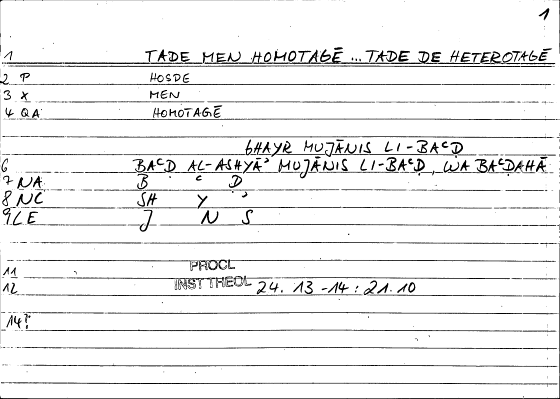 1
1 TADE MEN HOMOTAGĒ ... TADE DE HETEROTAGĒ
2 P HOSDE
3 X MEN
4 QA HOMOTAGĒ
GHAYR MUJĀNIS LI-BAᶜD
6 BAᶜD AL-ASHYĀʾ MUJĀNIS LI-BAᶜD, WA BAᶜDAHĀ
7 NA B ᶜ D
8 NC SH Y ʾ
9 LE J N S
11 PROCL
12 INST THEOL 24.13-14:21.10
14?